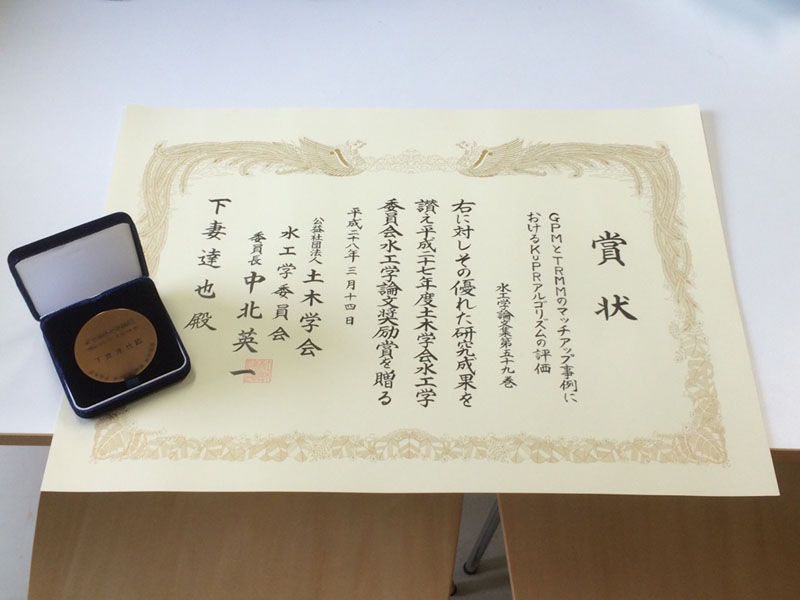 賞状
GPMとTRMMのマッチアップ事例に
おけるKuPRアルゴリズムの評価
水工学論文集第五十九巻
右に対しその優れた研究成果を
讃え平成二十七年度土木学会水工学
委員会水工学論文奨励賞を贈る
平成二十八年三月十四日
公益社団法人 土木学会
水工学委員会
委員長 中北英一
下妻達也殿